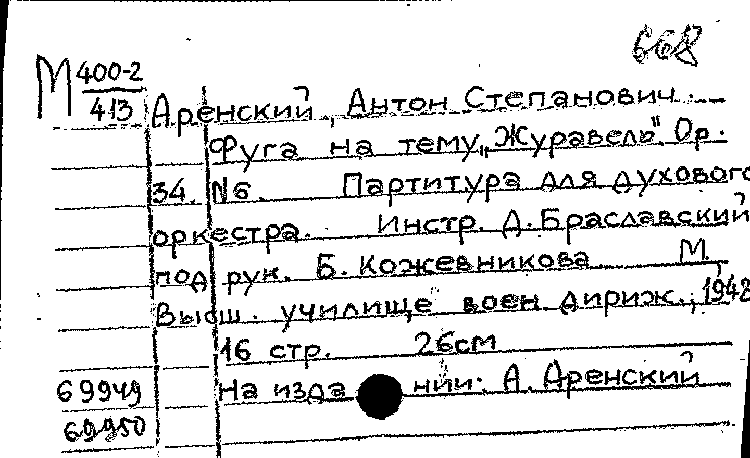 668
М 400-2
413
Аренский, Антон Степанович.
Фуга на тему "Журавель". Ор.
34. N6. Партитура для духового
оркестра. Инстр. Д. Браславский
под рук. Б. Кожевникова М.
Высш. училище воен. дириж., 1948
16 стр. 26см
69949 На издании: А. Аренский
69950